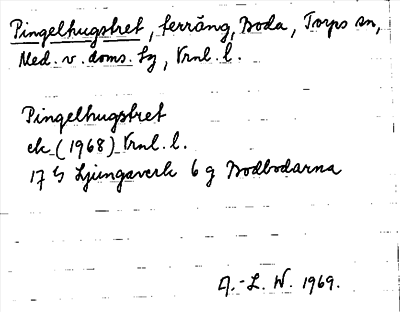 Pingelhugstret, terräng, Boda, Torps sn,
Med. v. doms. Sg, Vrnl. l.
Pingelhugstret
ek (1968) Vrnl. l.
17 G Ljungaverk 6 g Bodbodarna
A.-L. W. 1969.